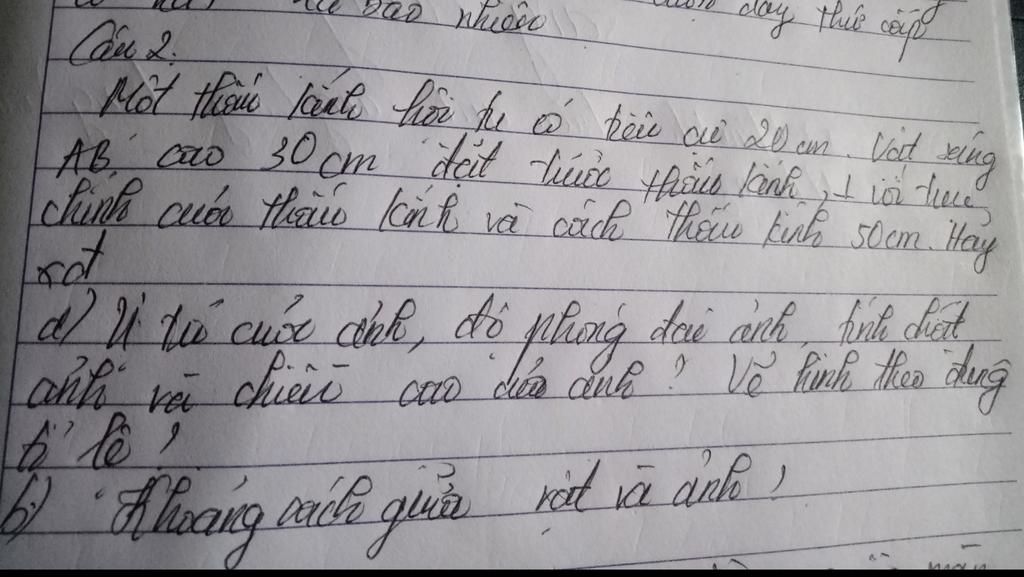 bao nhiêu dây thứ cấp
Câu 2.
Một thấu kính hội tụ có tiêu cự 20 cm. Vật sáng
AB, cao 30 cm đặt trước thấu kính, ⊥ với trục
chính của thấu kính và cách thấu kính 50 cm. Hãy
xđ
a) Vị trí của ảnh, độ phóng đại ảnh, tính chất
ảnh và chiều cao của ảnh? Vẽ hình theo đúng
tỉ lệ?
b) Khoảng cách giữa vật và ảnh?